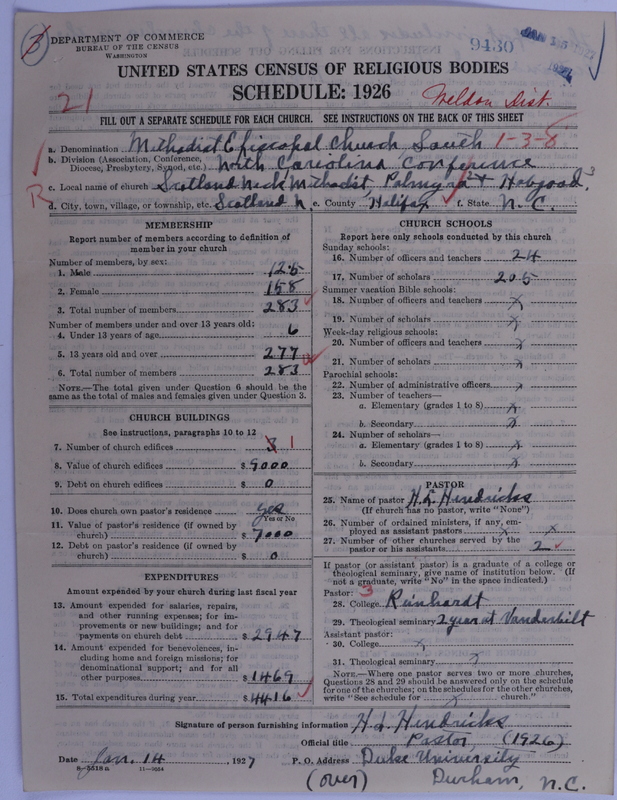 DEPARTMENT OF COMMERCE
BUREAU OF THE CENSUS
WASHINGTON
9430
UNITED STATES CENSUS OF RELIGIOUS BODIES
SCHEDULE: 1926
21
Weldon Dist.
FILL OUT A SEPARATE SCHEDULE FOR EACH CHURCH. SEE INSTRUCTIONS ON THE BACK OF THIS SHEET
a. Denomination Methodist Episcopal Church South 1-3-8
b. Division (Association, Conference, Diocese, Presbytery, Synod, etc.) North Carolina Conference
R
c. Local name of church Scotland Neck Methodist, Palmyra 2 + Hobgood 3
d. City, town, village, or township, etc. Scotland N. e. County Halifax f. State N. C.
MEMBERSHIP
Report number of members according to definition of member in your church
Number of members, by sex:
1. Male 125
2. Female 158
3. Total number of members 283
Number of members under and over 13 years old:
4. Under 13 years of age 6
5. 13 years old and over 277
6. Total number of members 283
NOTE.—The total given under Question 6 should be the same as the total of males and females given under Question 3.
CHURCH BUILDINGS
See instructions, paragraphs 10 to 12
7. Number of church edifices 3 1
8. Value of church edifices $ 9000
9. Debt on church edifices $ 0
10. Does church own pastor's residence yes
Yes or No
11. Value of pastor's residence (if owned by church) $ 7000
12. Debt on pastor's residence (if owned by church) $ 0
EXPENDITURES
Amount expended by your church during last fiscal year
13. Amount expended for salaries, repairs, and other running expenses; for improvements or new buildings; and for payments on church debt $ 2947
14. Amount expended for benevolences, including home and foreign missions; for denominational support; and for all other purposes $ 1469
15. Total expenditures during year $ 4416
CHURCH SCHOOLS
Report here only schools conducted by this church
Sunday schools:
16. Number of officers and teachers 24
17. Number of scholars 205
Summer vacation Bible schools:
18. Number of officers and teachers x
19. Number of scholars x
Week-day religious schools:
20. Number of officers and teachers x
21. Number of scholars x
Parochial schools:
22. Number of administrative officers x
23. Number of teachers—
a. Elementary (grades 1 to 8) x
b. Secondary x
24. Number of scholars—
a. Elementary (grades 1 to 8) x
b. Secondary x
PASTOR
25. Name of pastor H. L. Hendricks
(If church has no pastor, write "None")
26. Number of ordained ministers, if any, employed as assistant pastors x x
27. Number of other churches served by the pastor or his assistants 2
If pastor (or assistant pastor) is a graduate of a college or theological seminary, give name of institution below. (If not a graduate, write "No" in the space indicated.)
Pastor: 3
28. College Reinhardt
29. Theological seminary 2 year at Vanderbilt
Assistant pastor:
30. College x
31. Theological seminary x
NOTE.—Where one pastor serves two or more churches, Questions 28 and 29 should be answered only on the schedule for one of the churches; on the schedules for the other churches, write "See schedule for x church."
Signature of person furnishing information H. L. Hendricks
Official title Pastor, (1926)
Date Jan. 14, 1927 P. O. Address Duke University
8-5518a 11-9064
(over) Durham, N.C.